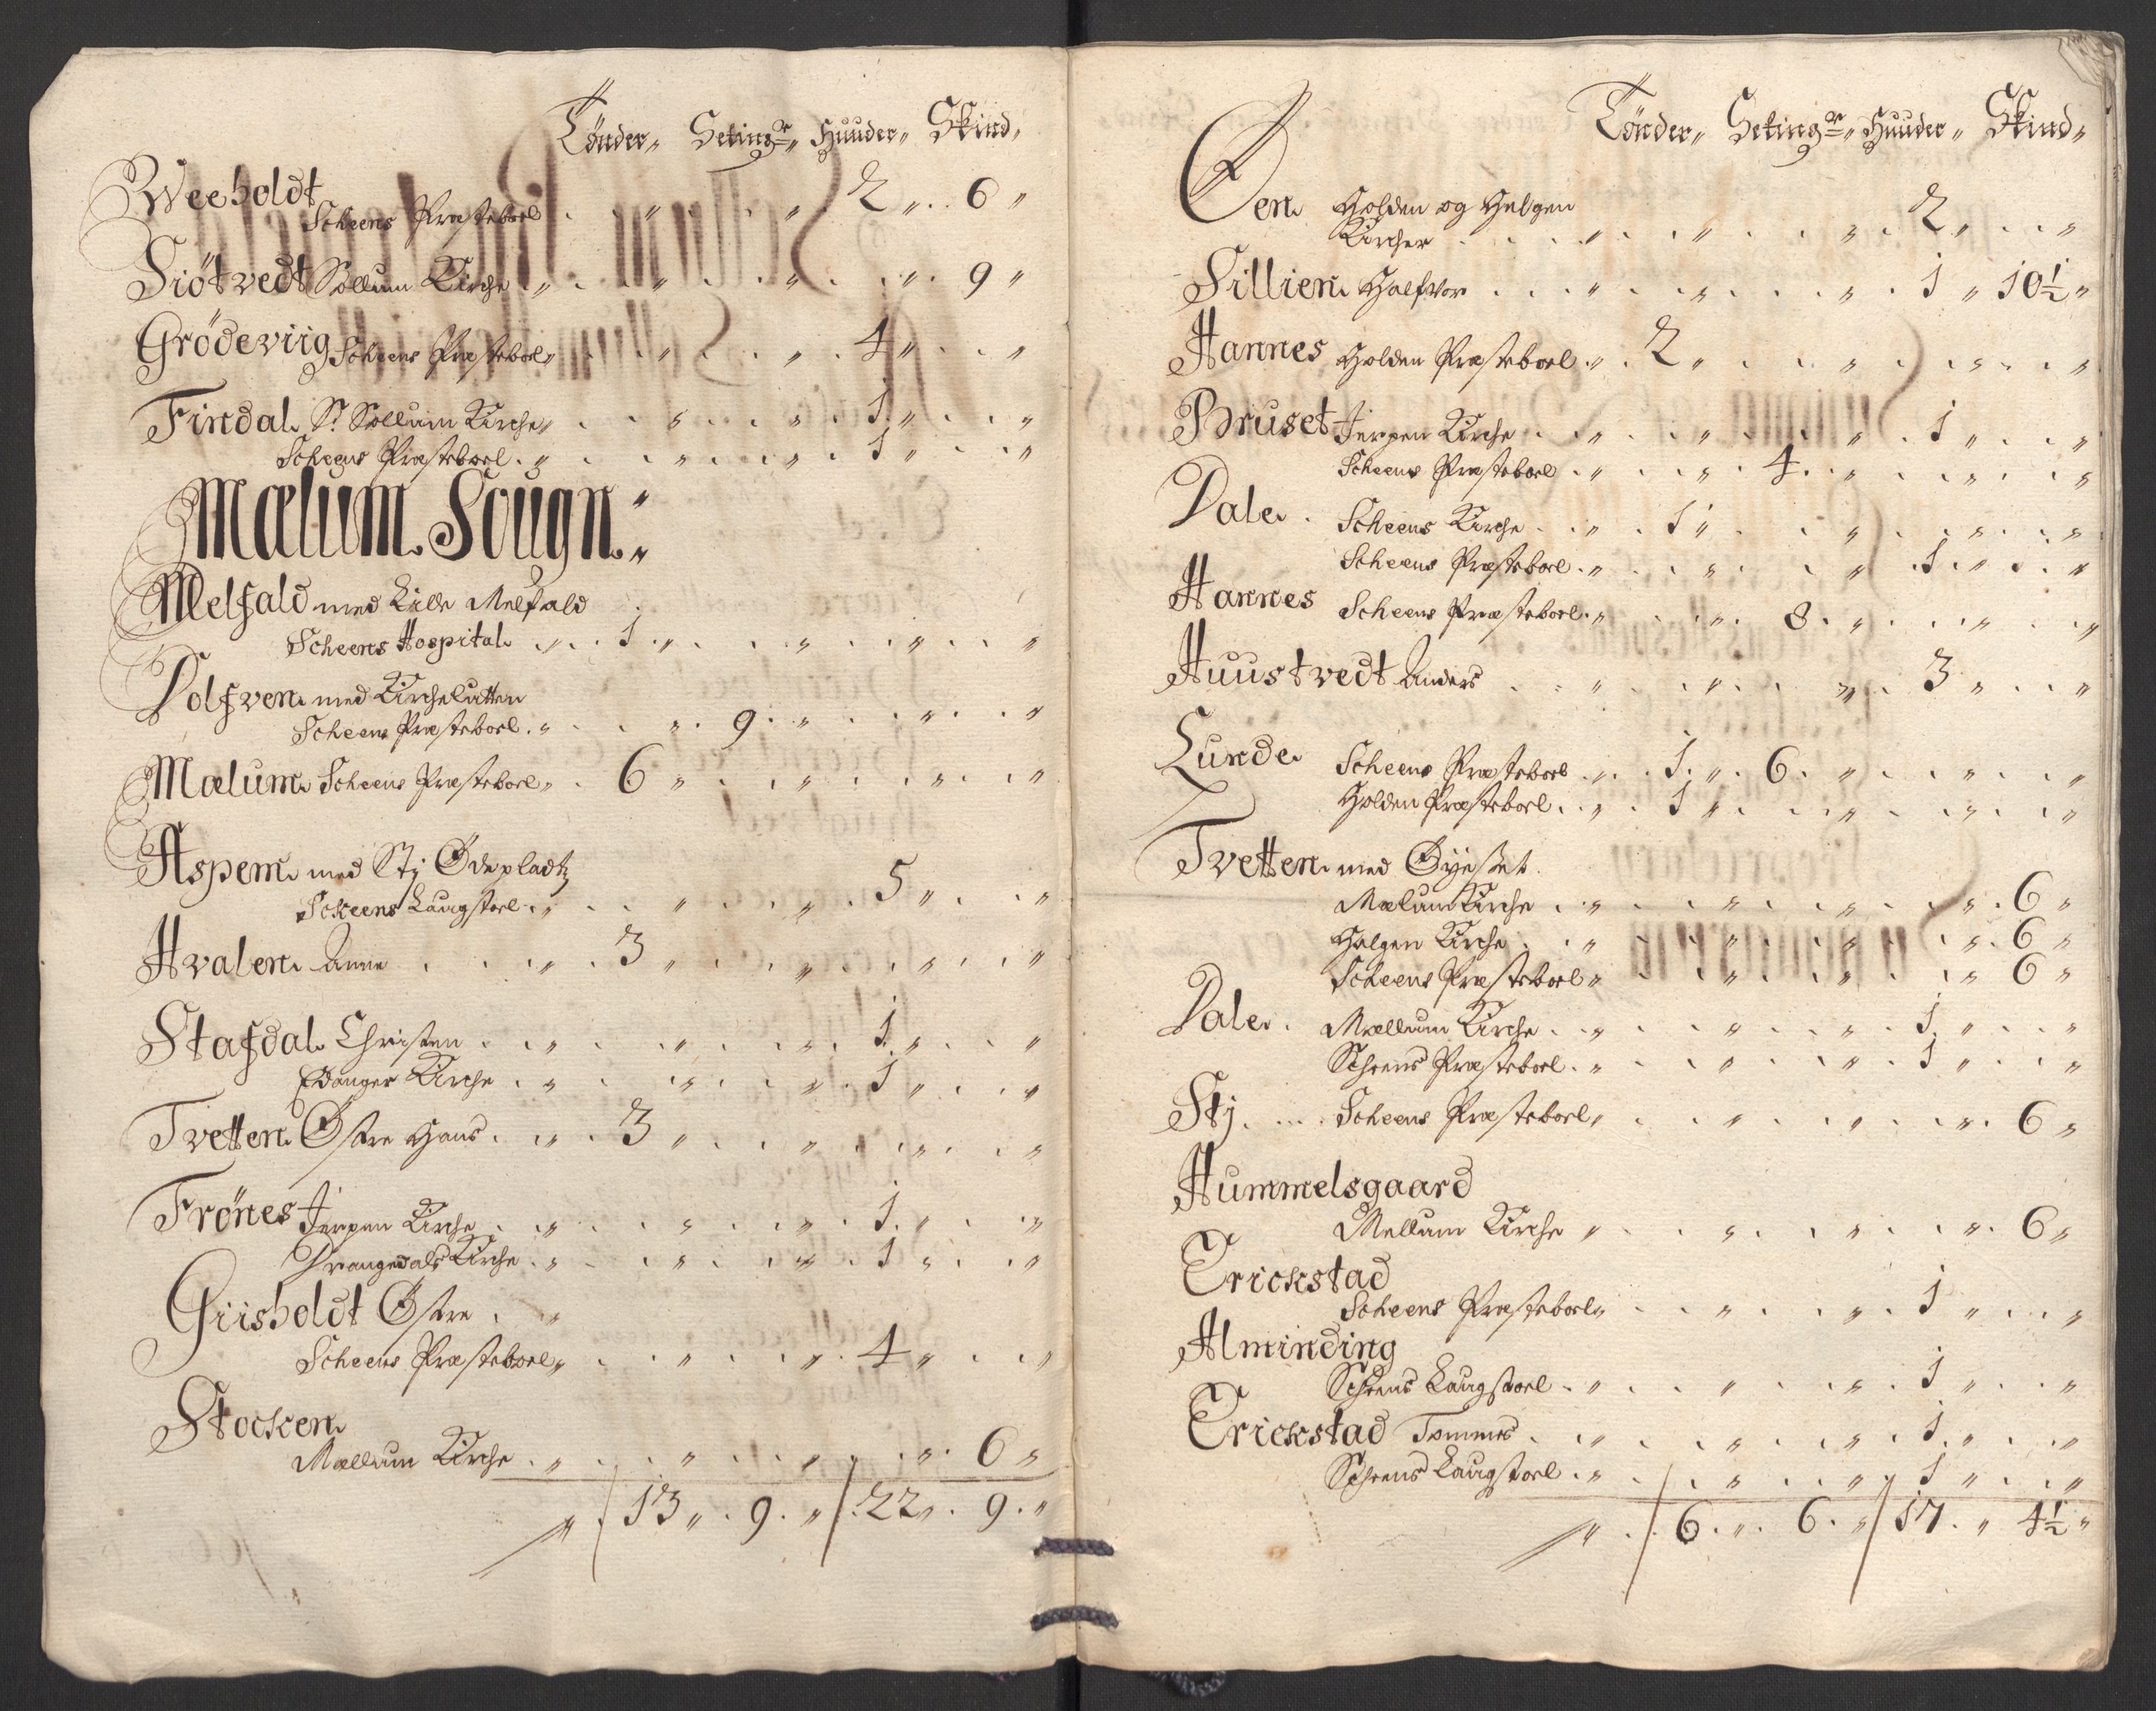 Tönder„ Seting:r„ Huuder„ Skind„
Weeholdt
Scheens Præsteboel . „ . „ 2 „ . 6 „
Siötvedt Sollum Kirche „ . „ . „ . „ . 9 „
Grödeviig Scheens Præsteboel „ . „ . „ . 4 „ . . „
Findal. St Sollum Kirche „ . . „ . . „ . 1. „ . . „
Scheens Præsteboel . „ . „ . . „ . 1 „ . . „
Mælum. Sougn.
Melfald med Lille Melfald
Scheens Hospital. „ . . 1. „ . . „ . . „ . . „
Dolfven. med Kirchelutten
Scheens Præsteboel . „ . . „ . 9. „ . . „ . . „
Mælum. Scheens Præsteboel „ . 6 „ . . „ . . „ . . „
Aspem. med Stj Ödepladtz
Scheens Laugstoel . „ . . „ . . „ . 5 „ . . „
Hvalen. Anne . . . „ . 3 „ . . „ . . „ . . „
Stafdal. Christen . . „ . . „ . . „ . 1. „ . . „
Eidanger Kirche . „ . . „ . . „ . 1 „ . . „
Tvetten. Östre Hans . „ . 3 „ . . „ . . „ . . „
Frönes Jerpen Kirche . „ . . „ . . „ . 1. „ . . „
Drangedals Kirche . „ . . „ . . „ . 1 „ . . „
Griisholdt Östre . „
Scheens Præsteboel „ . . „ . . „ . 4 „ . . „
Stocken.
Mællum Kirche . „ . . „ . . „ . . „ . 6 „
„ . 13 „ . 9. „ . 22 „ . 9. „
Tönder„ Seting:r„ Huuder„ Skind„
Oen. Holden og Helgen
Kircher . . . „ . . „ . . „ . 2 „ . . „
Sillien. Halfvor . . . „ . . „ . . „ . 1 „ 10½ „
Hannes Holden Præsteboel . „ . 2 „ . . „ . . „ . . „
Bruset Jerpen Kirche . . „ . . „ . . „ . 1 „ . . „
Scheens Præsteboel . „ . . „ . 4. . „ . . „ . . „
Dale. . Scheens Kirche . . „ . 1 „ . . „ . . „ . . „
Scheens Præsteboel . „ . . „ . . „ . 1. „ . . „
Hannes Scheens Præsteboel . „ . . „ . 8. „ . . „ . . „
Huustvedt Anders . . . „ . . „ . . „ . 3 „ . . „
Lunde. Scheens Præsteboel . „ . 1. „ . 6. „ . . „ . . „
Holden Præsteboel . . „ . 1 „ . . „ . . „ . . „
Tvetten. med Öyeset.
Mælum Kirche . . „ . . „ . . „ . . „ . 6 „
Helgen Kirche . . „ . . „ . . „ . . „ . 6 „
Scheens Præsteboel „ . . „ . . „ . . „ 6 „
Dale. . Mællum Kirche . . „ . . „ . . „ . 1. „ . . „
Scheens Præsteboel . „ . . „ . . „ . 1 „ . . „
Stj. . . . . Scheens Præsteboel „ . . „ . . „ . . „ . 6 „
Hummelsgaard
Mellum Kirche „ . . „ . . „ . . „ . 6 „
Erickstad
Scheens Præsteboel „ . . „ . . „ . 1 „ . . „
Alminding
Scheens Laugstoel . „ . . „ . . „ . 1 „ . . „
Erickstad Tommes . . „ . . „ . . „ . 1. „ . . „
Scheens Laugstoel . „ . . „ . . „ . 1 „ . . „
„ . . 6. „ . 6. „ 17. „ 4½ „